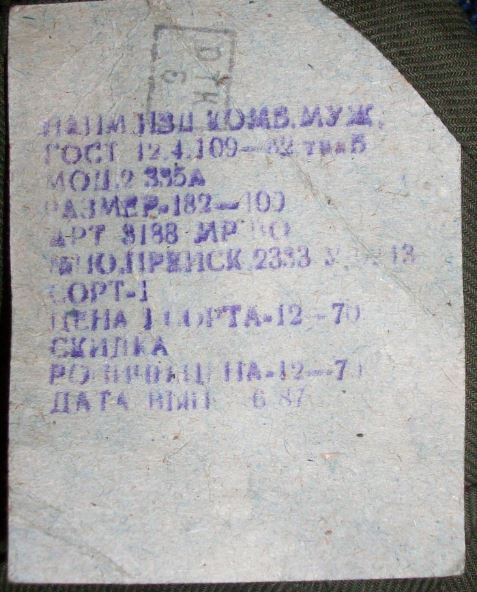 ОТК
6
НАИМ.ИЗД КОМБ.МУЖ.
ГОСТ 12.4.109—82 тип Б
МОД.2 335А
РАЗМЕР-182—100
АРТ 3188
ПРЕЙСК.2333
СОРТ-1
ЦЕНА 1 СОРТА-12—70
СКИДКА
РОЗНИЧ ЦЕНА-12—70
ДАТА ВЫП 6 87